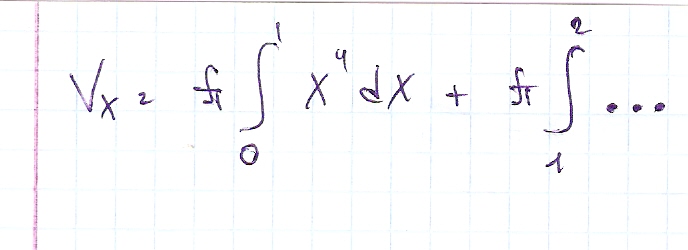 Vₓ = π ∫₀¹ x⁴ dx + π ∫₁² ...